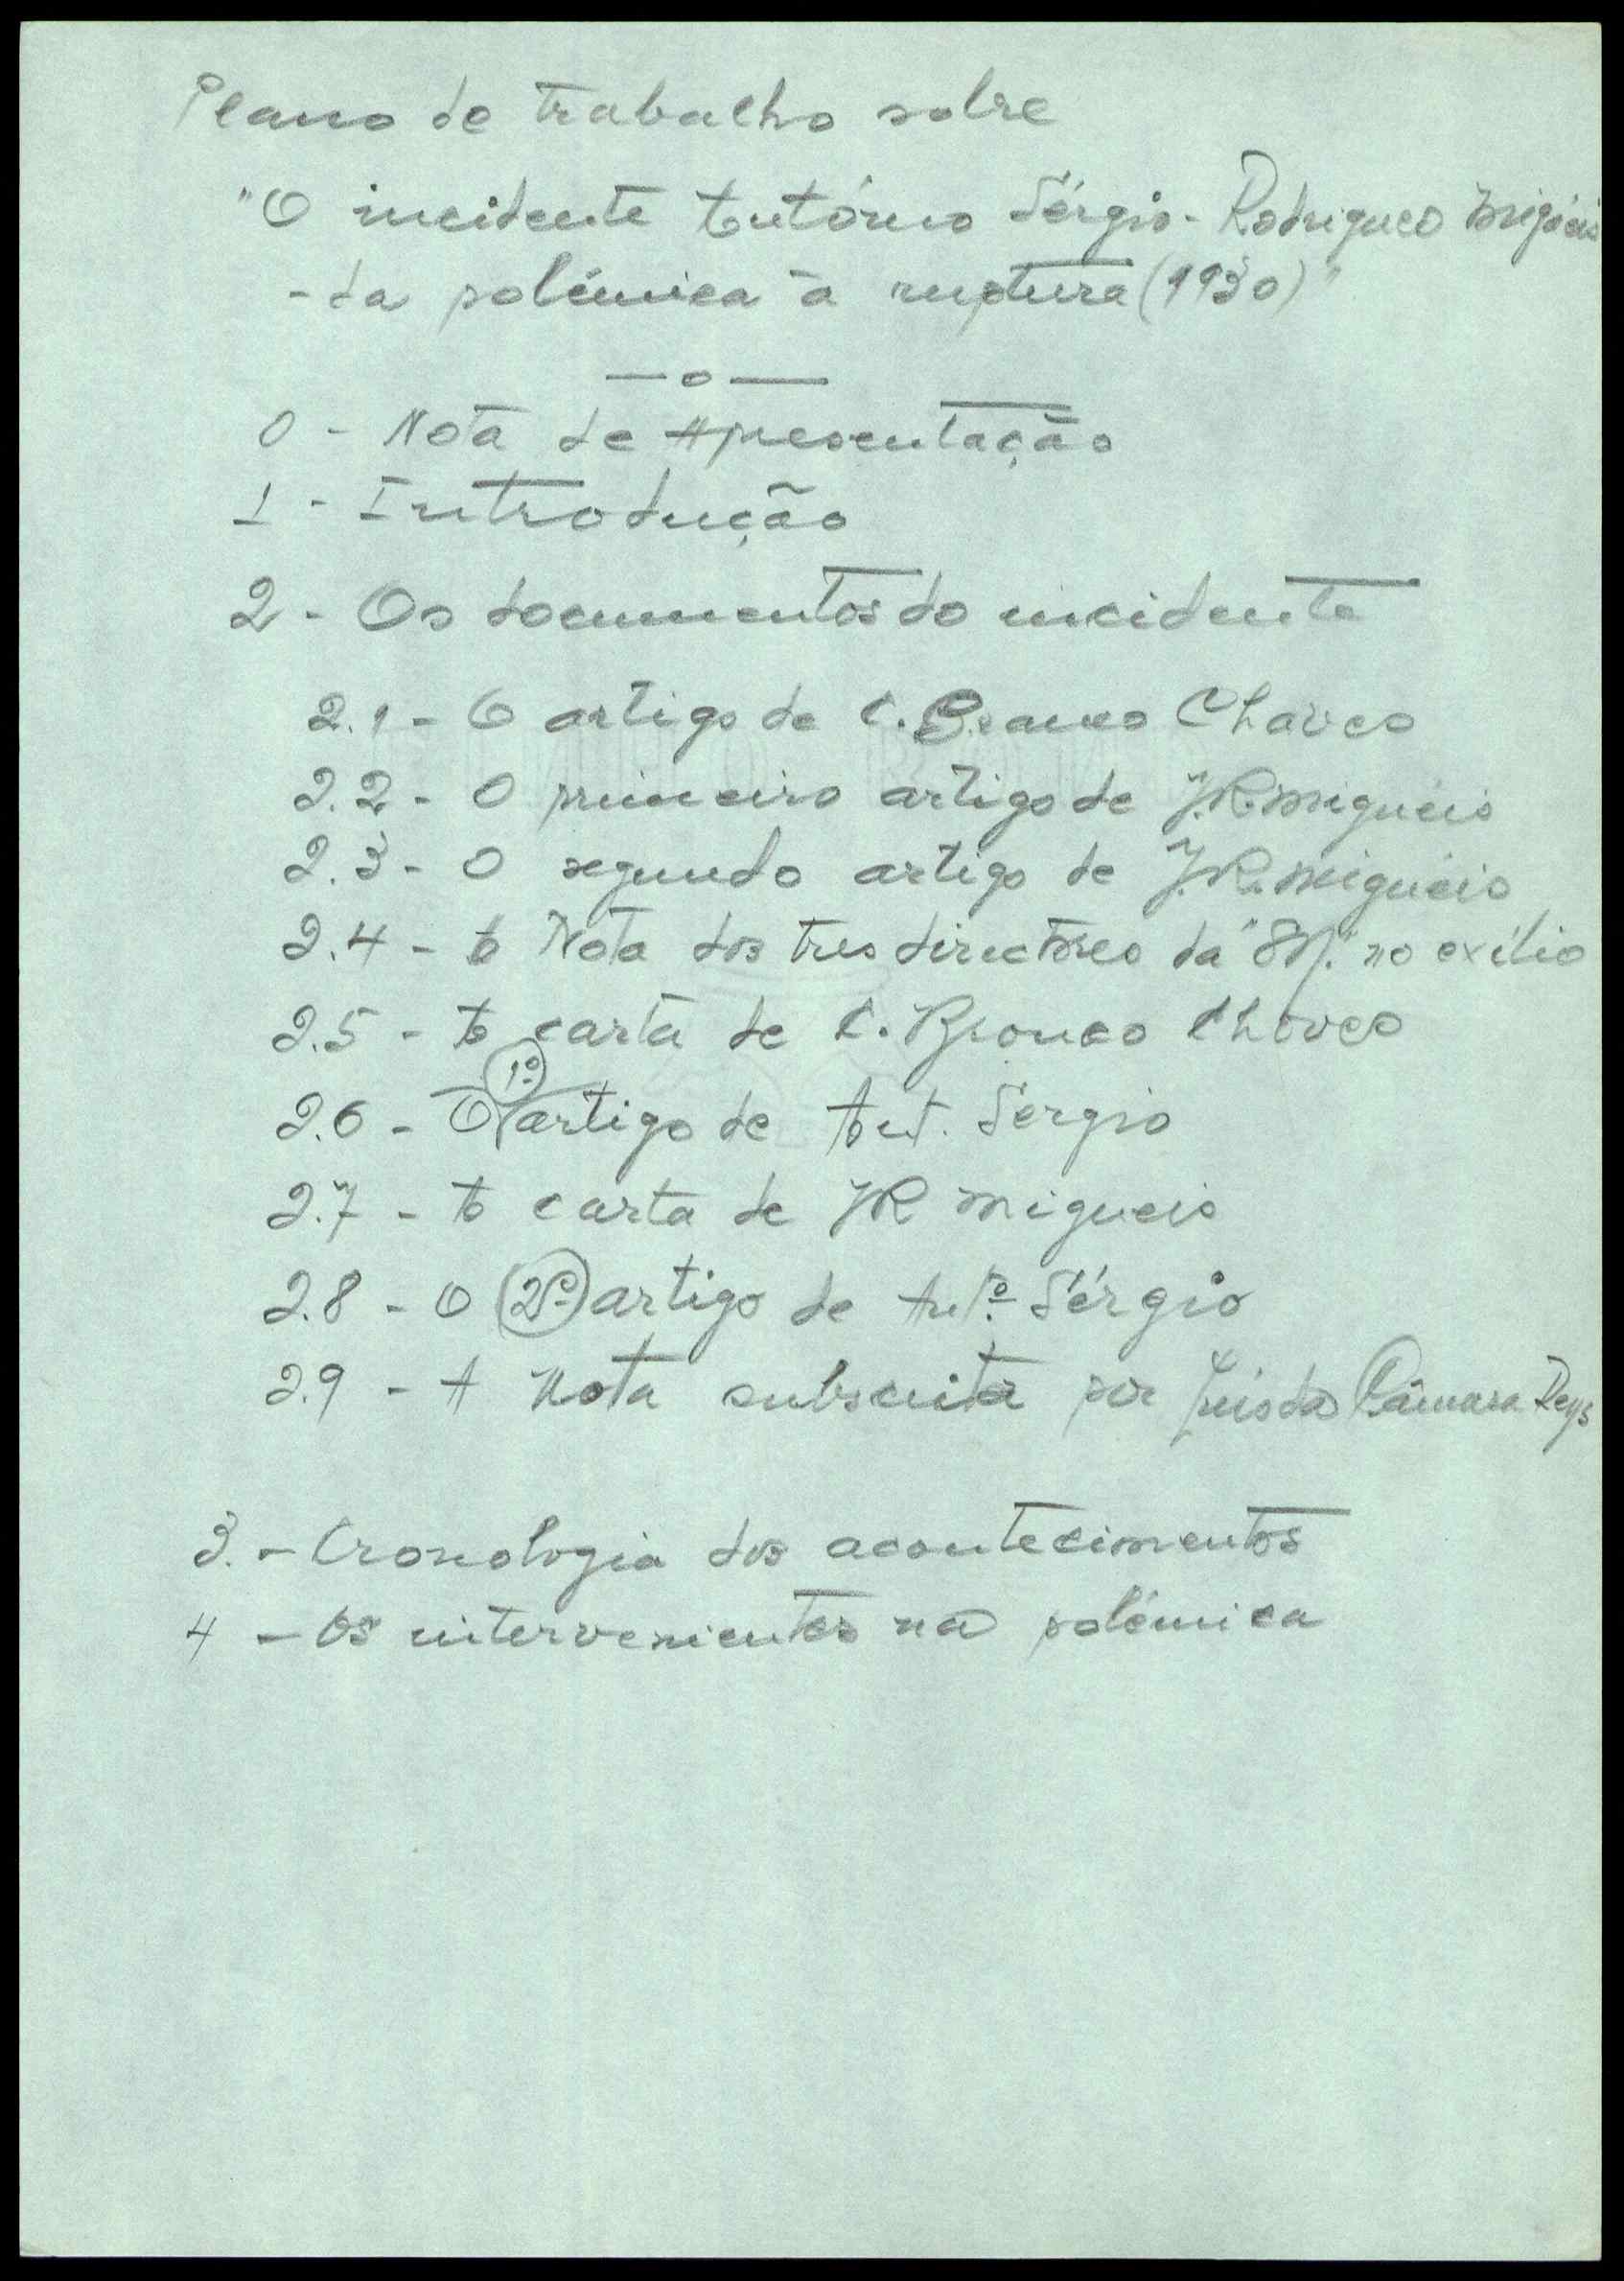 Plano de trabalho sobre
"O incidente António Sérgio - Rodrigues Miguéis
- da polémica à ruptura (1930)"
— o —
0 - Nota de Apresentação
1 - Introdução
2 - Os documentos do incidente
2.1 - O artigo de C. Branco Chaves
2.2 - O primeiro artigo de J.R. Miguéis
2.3 - O segundo artigo de J.R. Miguéis
2.4 - A Nota dos tres directores da "SN." no exílio
2.5 - A carta de C. Branco Chaves
2.6 - O 1º artigo de Ant. Sérgio
2.7 - A carta de JR Migueis
2.8 - O 2º artigo de Antº. Sérgio
2.9 - A Nota subscrita por Luís da Câmara Reys
3. - Cronologia dos acontecimentos
4 - Os intervenientes na polémica